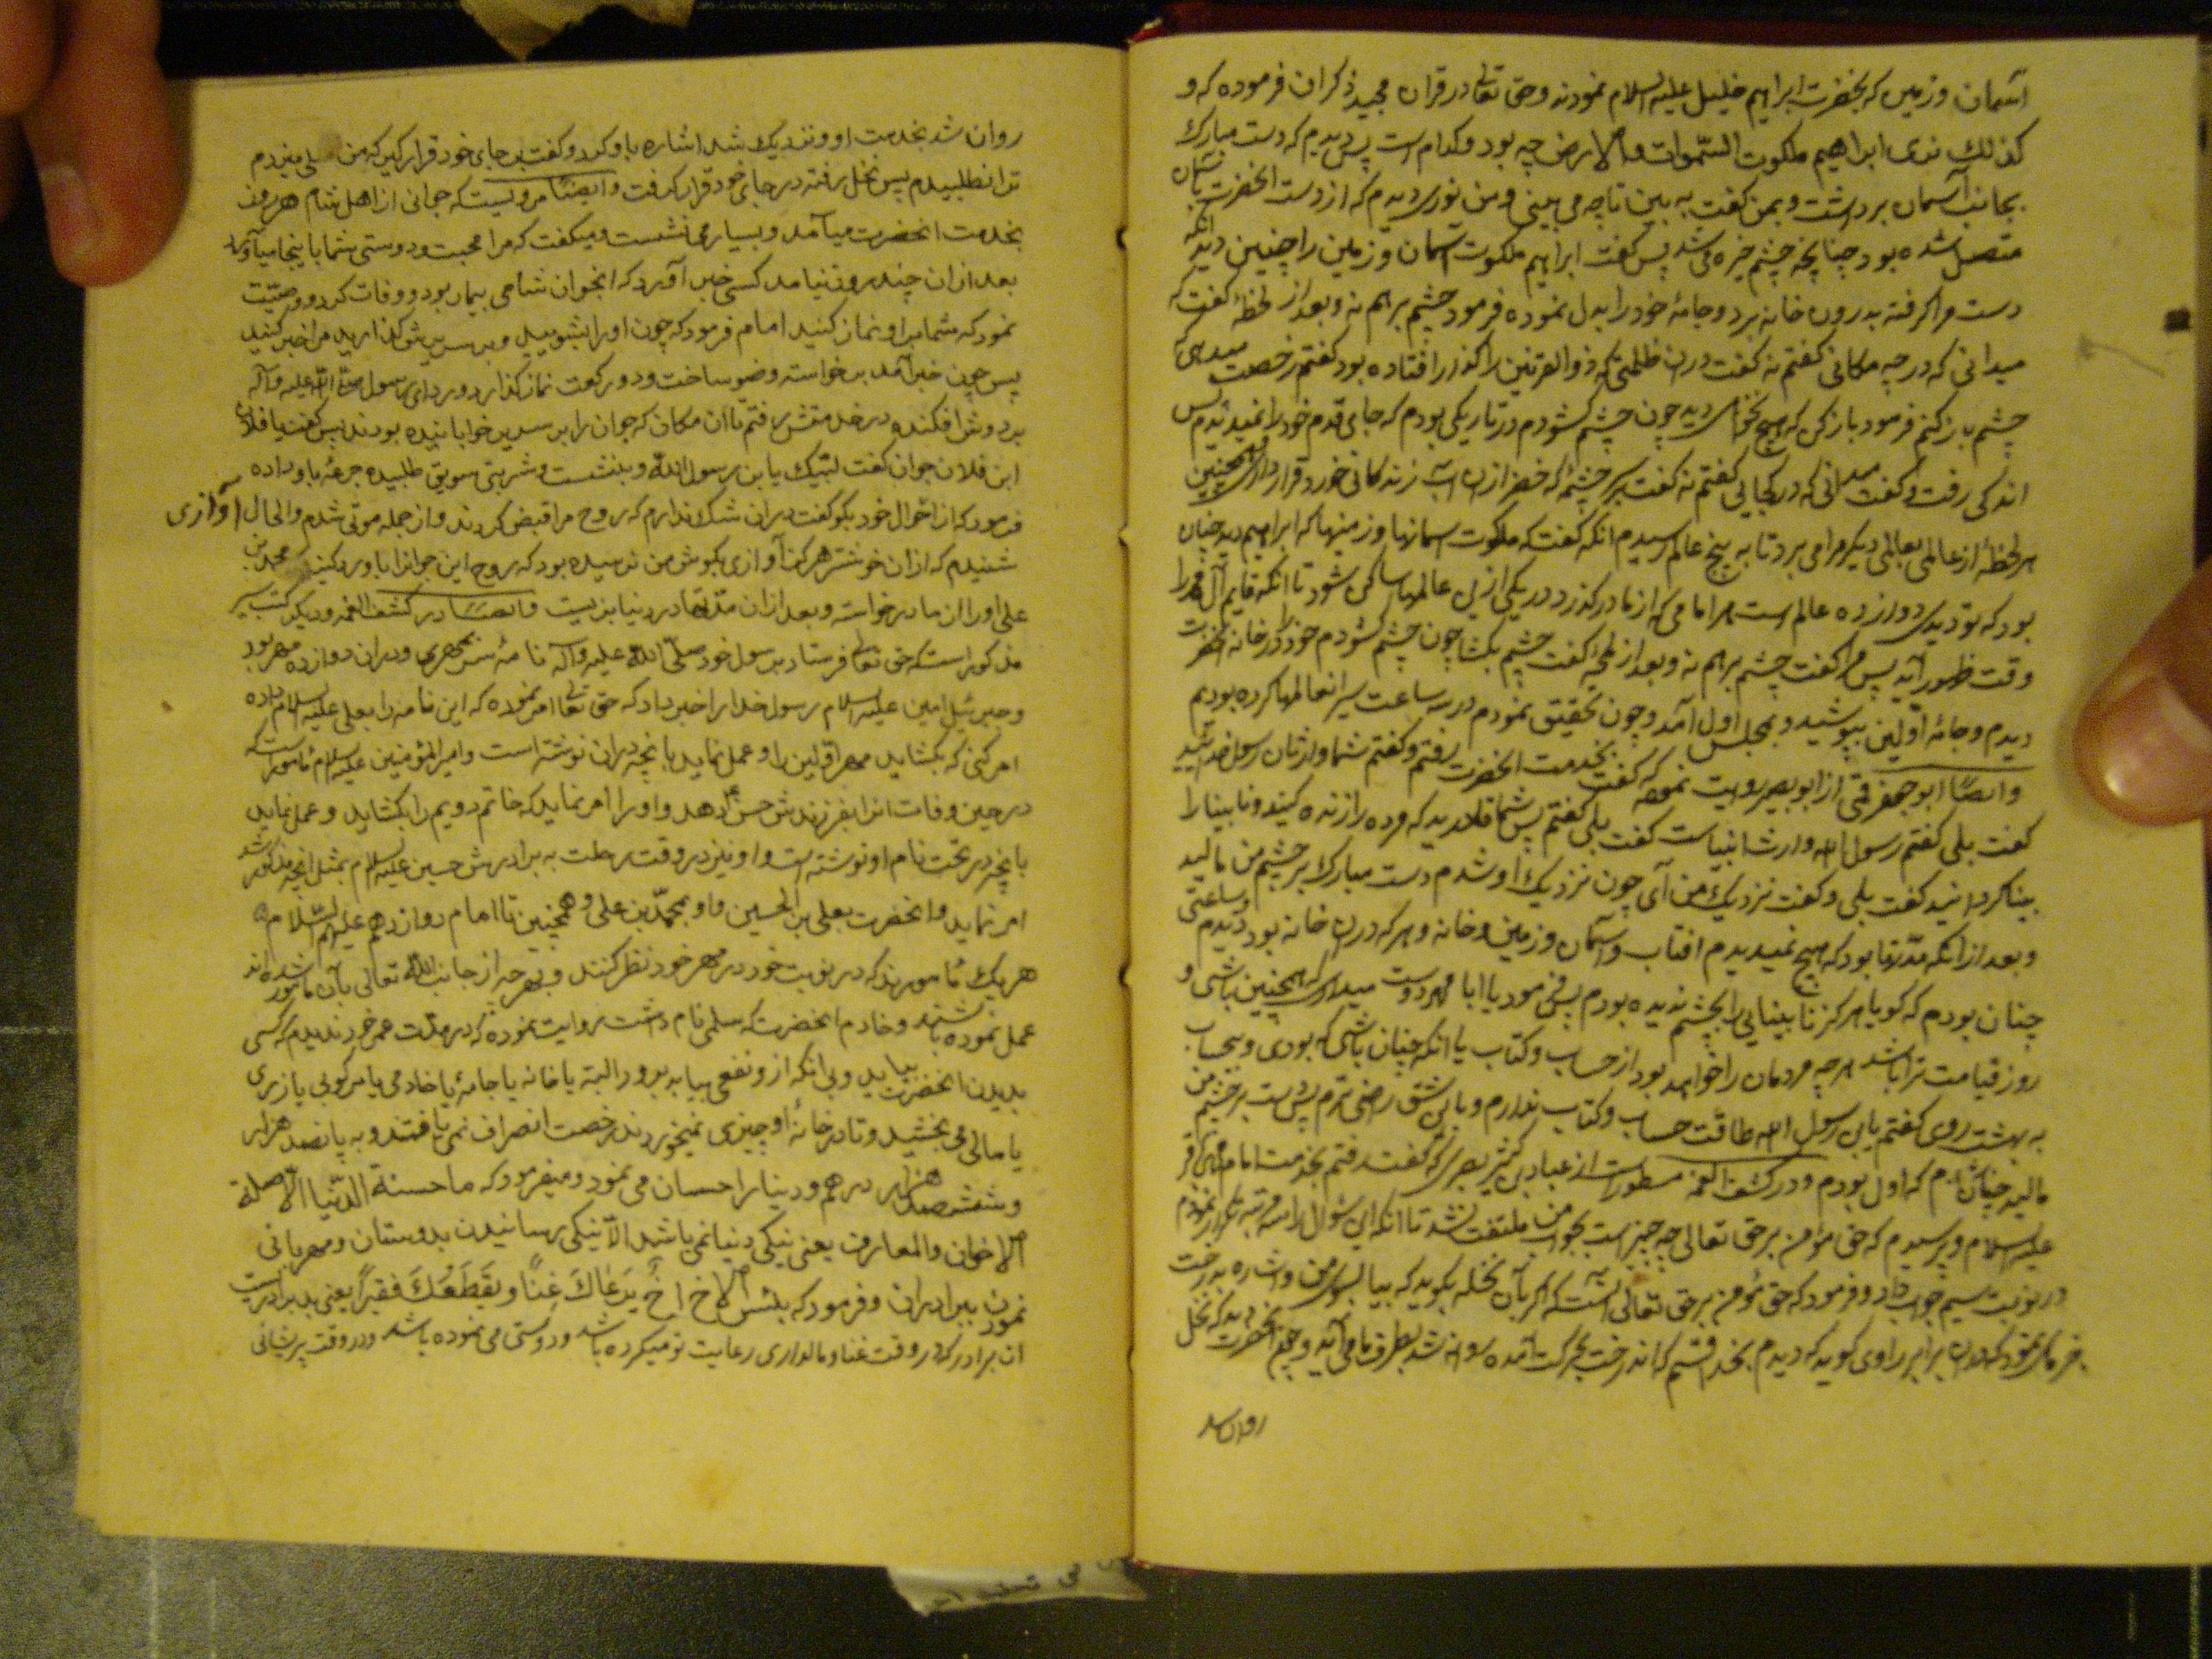 آسمان و زمین که بحضرت ابراهیم خلیل علیه السلام نمودند و حق تعالی در قران مجید ذکر ان فرموده که و
کذلک نری ابراهیم ملکوت السّموات والارض چه بود و کدام است پس دیدم که دست مبارک
بجانب آسمان برداشت و بمن گفت به بین تا چه می بینی و من نوری دیدم که از دست انحضرت باسمان
متصل شده بود چنانچه چشم خیره می شد پس گفت ابراهیم ملکوت اسمان و زمین را چنین دید انکه
دست مرا گرفته بدرون خانه برد و جامهٔ خود را بدل نموده فرمود چشم برهم نه و بعد از لحظهٔ گفت که
میدانی که در چه مکانی گفتم نه گفت دران ظلمتی که ذوالقرنین را گذر افتاده بود گفتم رخصت میدهی که
چشم باز کنم فرمود باز کن که هیچ نخواهی دید چون چشم گشودم در تاریکی بودم که جای قدم خود را نمیدیدم پس
اندکی رفت و گفت میدانی که در کجایی گفتم نه گفت بر سر چشمهٔ که خضر ازان اب زندگانی خورد قرار داری و همچنین
هر لحظهٔ از عالمی بعالمی دیگر مرا می برد تا به پنج عالم رسیدم انگه گفت که ملکوت اسمانها و زمینها که ابراهیم دید چنان
بود که تو دیدی دوازده عالم است هر امامی که از ما درگذرد در یکی از این عالمها ساکن شود تا انکه قایم آل محمد را
وقت ظهور آید پس مرا گفت چشم برهم نه و بعد از لمحهٔ گفت چشم بگشا چون چشم گشودم خود را در خانهٔ انحضرت
دیدم و جامهٔ اوّلین بپوشید و بمجلس اول آمد و چون تحقیق نمودم در سه ساعت سیر انعالمها کرده بودیم
وایضًا ابو جعفر قمی از ابو بصیر روایت نموده که گفت بخدمت انحضرت رفتم و گفتم شما وارثان رسول خدائید
گفت بلی گفتم رسول الله وارث انبیاست گفت بلی گفتم پس شما قادرید که مرده را زنده کنید و نابینا را
بینا گردانید گفت بلی و گفت نزدیک من آی چون نزدیک او شدم دست مبارک بر چشم من مالید
و بعد از انکه مدّتها بود که هیچ نمیدیدم افتاب و آسمان و زمین و خانه و هر که دران خانه بود دیدم و ساعتی
چنان بودم که گویا هرگز نابینایی را بچشم ندیده بودم پس فرمود یا ابا محمد دوست میداری که همچنین باشی و
روز قیامت ترا باشد هر چه مردمان را خواهد بود از حساب و کتاب یا انکه چنان باشی که بودی و بیحساب
به بهشت روی گفتم یابن رسول الله طاقت حساب و کتاب ندارم و باین شق راضی ترم پس دست بر چشم من
مالید چنان شدم که اول بودم و در کشف الغمه مسطور است از عباد بن کثیر بصری که گفت رفتم بخدمت امام محمد باقر
علیه السلام و پرسیدم که حق مؤمن بر حق تعالی چه چیز است بجواب من ملتفت نشد تا انکه این سؤال را سه مرتبه تکرار نمودم
در نوبت سیم جواب داد و فرمود که حق مؤمن بر حق تعالی آنست که اگر بآن نخله بگوید که بیا بسوی من و اشاره بدرخت
خرمائی نمود که دران برابر بود راوی گوید که دیدم بخدا قسم که اندرخت بحرکت آمده روانه شد بطرف ما می آید و چون انحضرت دید که نخل
روان شد
روان شد بخدمت او و نزدیک شد اشاره باو کرد و گفت بر جای خود قرار گیر که من مثلی میزدم
ترا نطلبیدم پس نخل رفته در جای خود قرار گرفت وایضًا مرویست که جوانی از اهل شام هر روز
بخدمت انحضرت میآمد و بسیار می نشست و میگفت که مرا محبت و دوستی شما باینجا میآورد
بعد از ان چند روز نیامد کسی خبر آورد که انجوان شامی بیمار بود و وفات کرد و وصیّت
نمود که شما بر او نماز کنید امام فرمود که چون او را بشویید و بر سریرش گذارید مرا خبر کنید
پس چون خبر آمد برخواسته وضو ساخت و دو رکعت نماز گذارد و ردای رسول صلّی الله علیه وآله
بر دوش افکنده در خدمتش رفتم تا ان مکان که جوان را بر سریر خوابانیده بودند پس گفت یا فلان
ابن فلان جوان گفت لبّیک یابن رسول الله و بنشست و شربتی سویق طلبیده جرعهٔ باو داده
فرمود که از احوال خود بگو گفت دران شک ندارم که روح مرا قبض کردند و از جمله موتی شدم والحال آوازی
شنیدم که ازان خوشتر هرگز آوازی بگوش من نرسیده بود که روح این جوانرا باو رد کنید که محمد بن
علی او را از ما درخواسته و بعد ازان مدّتها در دنیا بزیست وایضًا در کشف الغمه و دیگر کتب سیر
مذکور است که حق تعالی فرستاد بر رسول خود صلّی الله علیه وآله نامهٔ سر بمهری و دران دوازده مهر بود
و جبرئیل امین علیه السلام رسول خدا را خبر داد که حق تعالی امر نموده که این نامه را بعلی علیه السلام داده
امر کنی که بگشاید مهر اوّلین را و عمل نماید بانچه دران نوشته است و امیرالمؤمنین علیه السلام مأمور است که
در حین وفات انرا بفرزندش حسن ع دهد و او را امر نماید که خاتم دویم را بگشاید و عمل نماید
بانچه در تحت نام او نوشته است و او نیز در وقت رحلت به برادرش حسین علیه السلام بمثل انچه مذکور شد
امر نماید و انحضرت بعلی بن الحسین و او بمحمّد بن علی و همچنین تا امام دوازدهم علیهم السّلام
هر یک مأمورند که در نوبت خود در مهر خود نظر کنند و بهرچه از جانب الله تعالی بآن مأمور شده اند
عمل نموده باشند و خادم انحضرت که سلمی نام داشت روایت نموده که در مدّت عمر خود ندیدم که کسی
بدیدن انحضرت بیاید و بی انکه از و نفعی بیابد برود البته یا خانه یا جامهٔ یا خادمی یا مرکوبی یا زری
یا مالی می بخشید و تا در خانهٔ او چیزی نمیخوردند رخصت انصراف نمی یافتند و به پانصد هزار
و ششصد هزار درهم و دینار احسان می نمود و میفرمود که ما حسنة الدّنیا الّا صلة
الاخوان والمعارف یعنی نیکی دنیا نمی باشد الّا نیکی رسانیدن بدوستان و مهربانی
نمودن ببرادران و فرمود که بئس الاخ اخٌ یَرعاکَ غنیًّا ویَقطَعُکَ فقیرًا یعنی بد برادریست
ان برادر که در وقت غنا و مالداری رعایت تو میکرده باشد و دوستی می نموده باشد و در وقت پریشانی